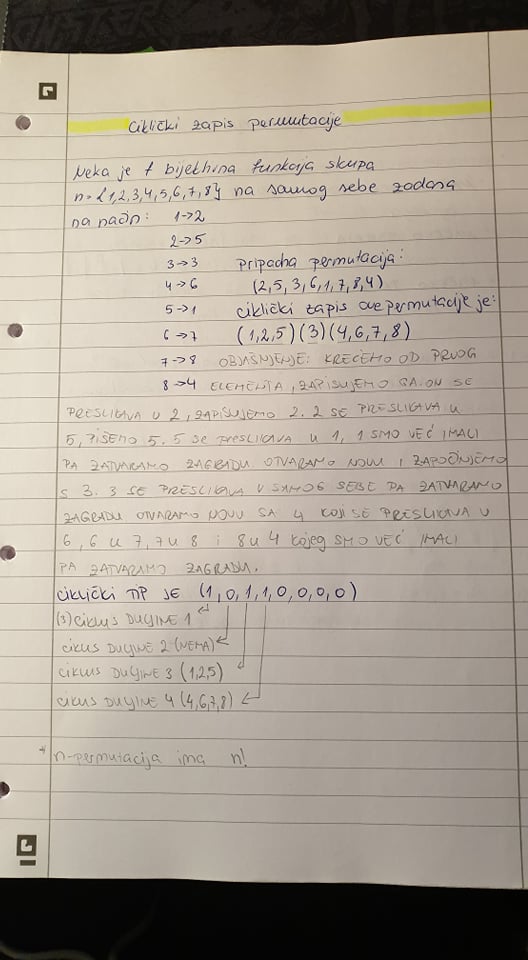 Ciklički zapis permutacije
Neka je f bijektivna funkcija skupa
n={1,2,3,4,5,6,7,8} na samog sebe zadana
na način: 1->2
2->5
3->3 pripadna permutacija:
4->6 (2,5,3,6,1,7,8,4)
5->1 ciklički zapis ove permutacije je:
6->7 (1,2,5)(3)(4,6,7,8)
7->8 OBJAŠNJENJE: KREĆEMO OD PRVOG
8->4 ELEMENTA, ZAPISUJEMO GA. ON SE
PRESLIKAVA U 2, ZAPISUJEMO 2. 2 SE PRESLIKAVA U
5, PIŠEMO 5. 5 SE PRESLIKAVA U 1, 1 SMO VEĆ IMALI
PA ZATVARAMO ZAGRADU. OTVARAMO NOVU I ZAPOČINJEMO
S 3. 3 SE PRESLIKAVA U SAMOG SEBE PA ZATVARAMO
ZAGRADU. OTVARAMO NOVU SA 4 KOJI SE PRESLIKAVA U
6, 6 U 7, 7 U 8 i 8 U 4 kojeg SMO VEĆ IMALI
PA ZATVARAMO ZAGRADU.
ciklički TIP JE (1,0,1,1,0,0,0,0)
(3) ciklus DULJINE 1
ciklus DULJINE 2 (NEMA)
ciklus DULJINE 3 (1,2,5)
ciklus DULJINE 4 (4,6,7,8)
* n-permutacija ima n!